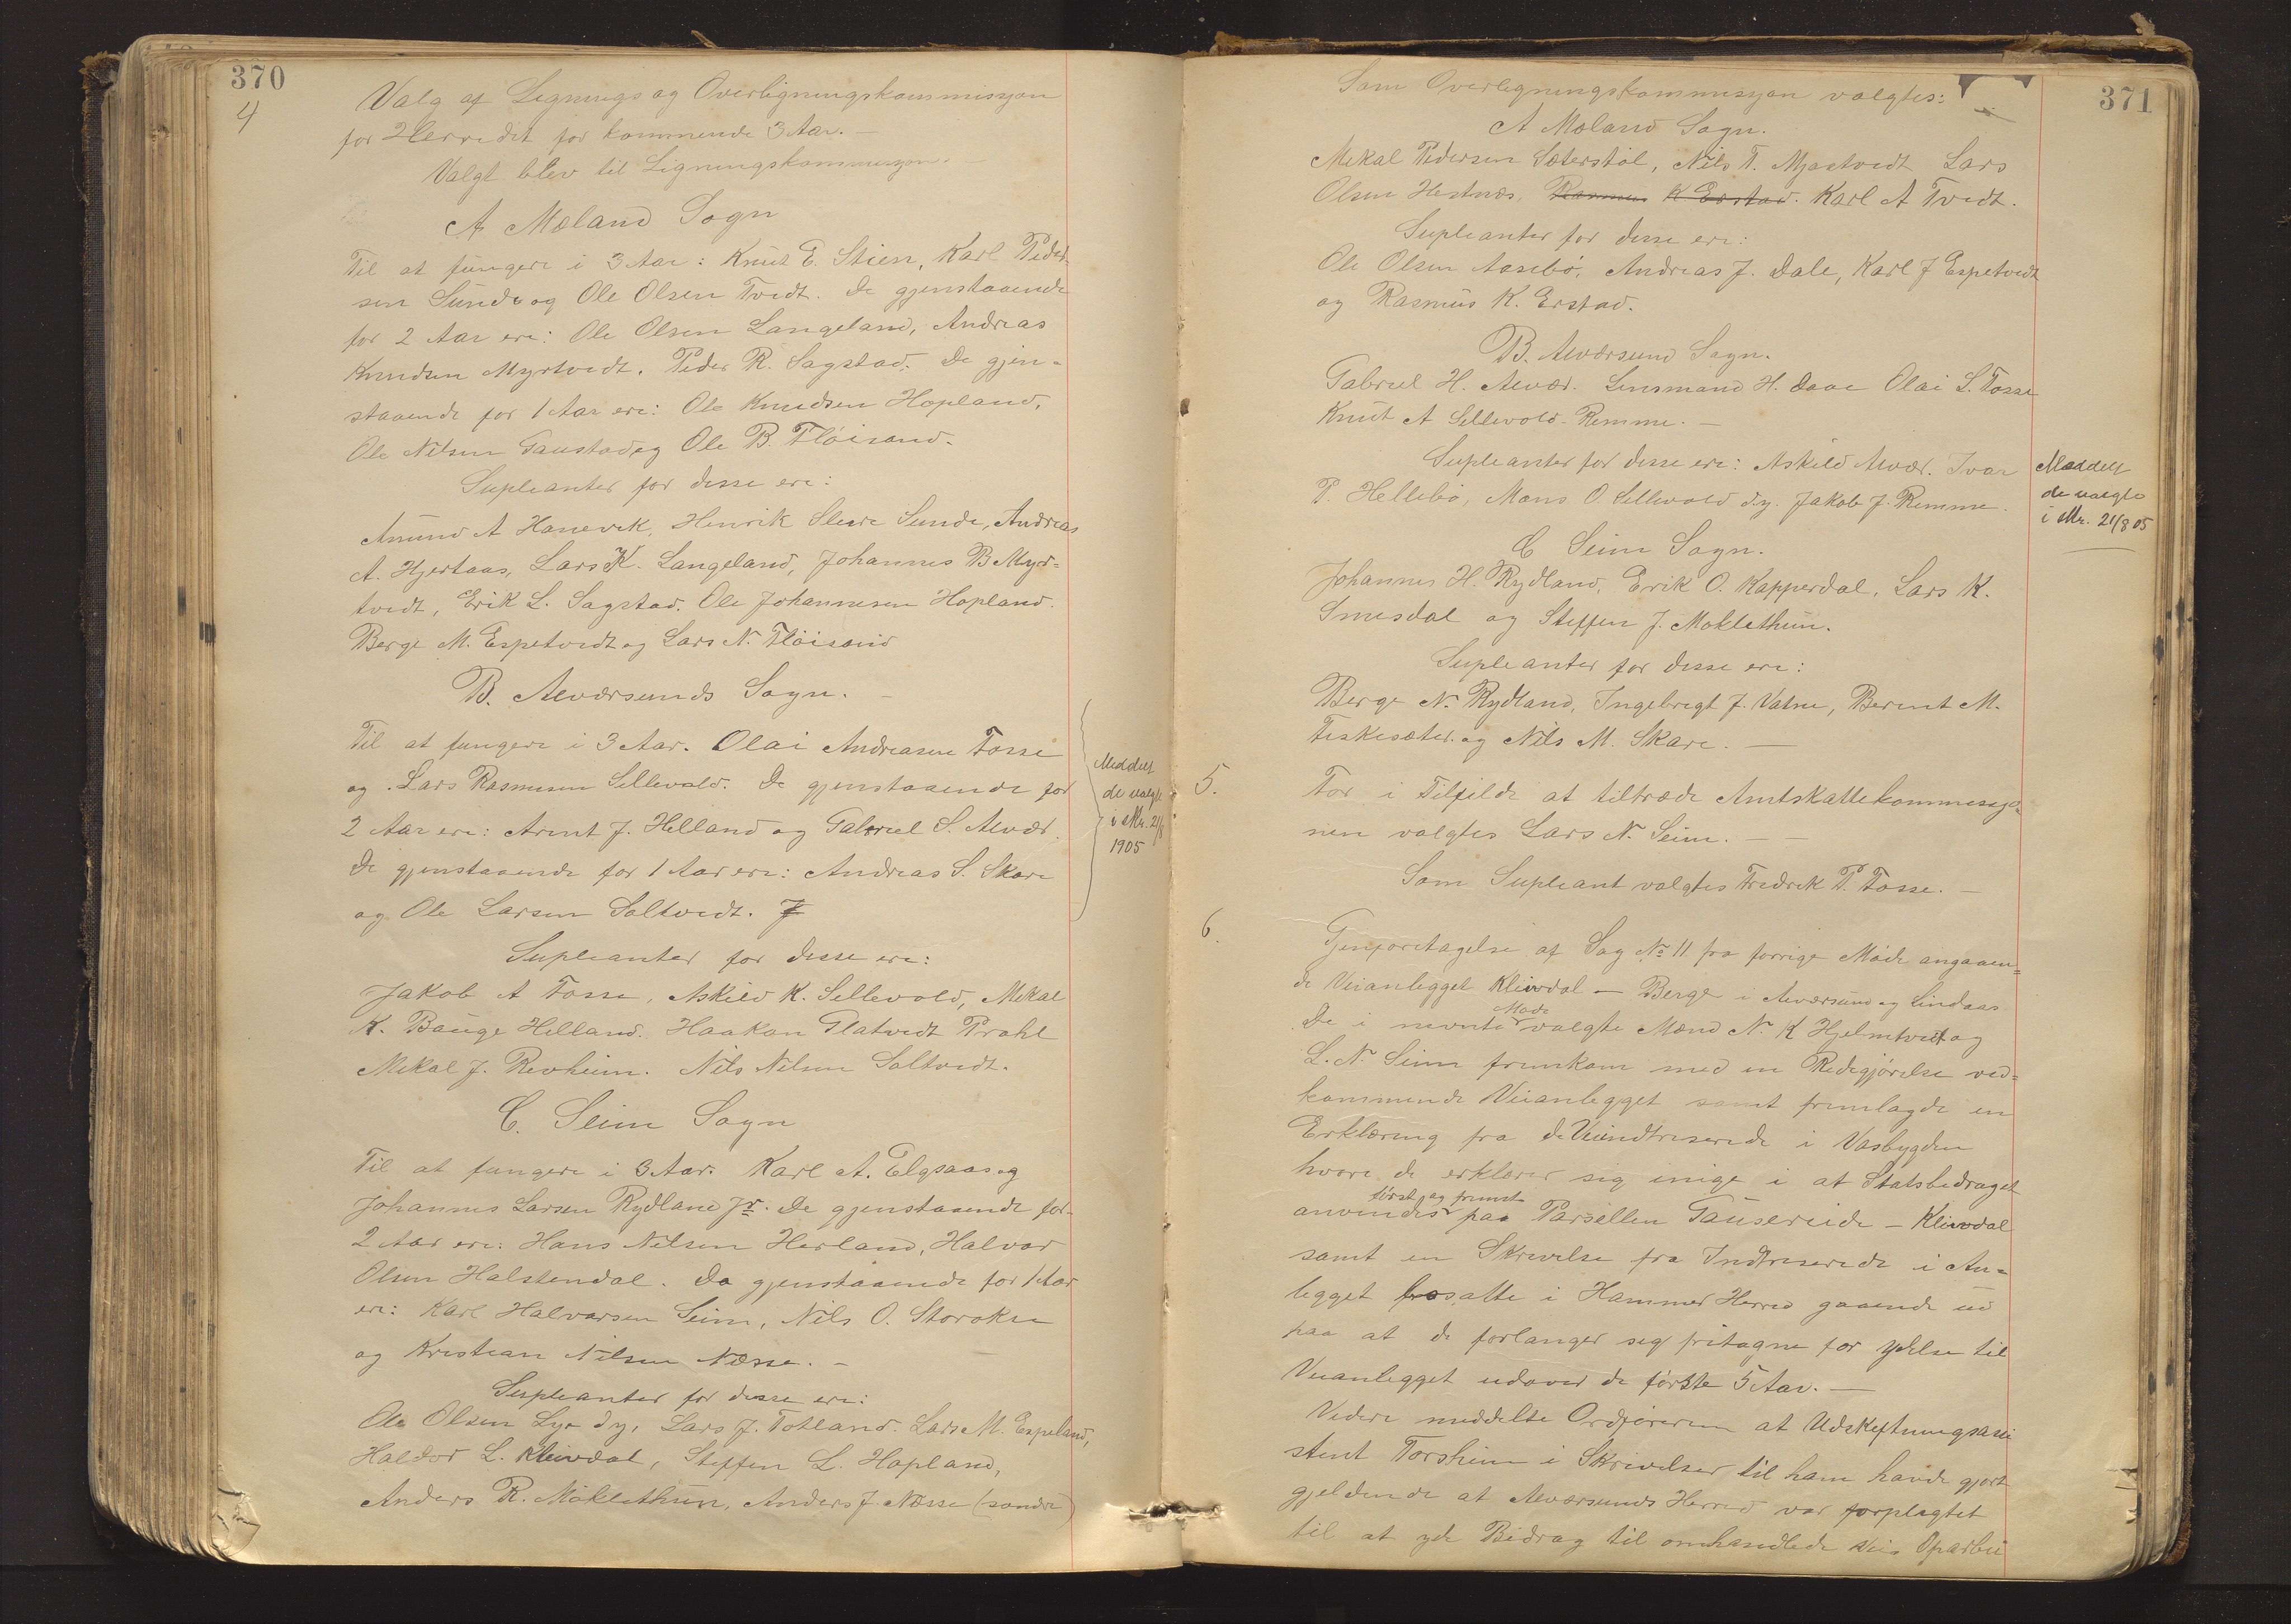 370
4
Valg af Lignings og Overligningskommissjon
for Herredet for kommende 3 Aar. —
Valgt blev til Ligningskommissjon.
A Mæland Sogn
Til at fungere i 3 Aar: Knut E. Stien, Karl Peder-
sen Sunde og Ole Olsen Tvedt. De gjenstaaende
for 2 Aar ere: Ole Olsen Langeland, Andreas
Knudsen Myrtvedt, Peder R. Sagstad. De gjen-
staaende for 1 Aar ere: Ole Knudsen Hopland,
Ole Nilsen Gaustad og Ole B. Fløisand.
Supleanter for disse ere:
Amund A Hanevik, Henrik Steire Sunde, Andreas
A. Hjertaas, Lars K. Langeland, Johannes B Myr-
tvedt, Erik L. Sagstad. Ole Johannesen Hopland.
Berge M. Espetvedt og Lars N. Fløisand
B. Alværsunds Sogn. —
Til at fungere i 3 Aar. Olai Andreasen Fosse
og Lars Rasmusen Sellevold. De gjenstaaende for
2 Aar ere: Arent J. Helland og Gabriel S. Alvær.
De gjenstaaende for 1 Aar ere: Andreas S. Skare
og Ole Larsen Soltvedt.
Meddelt
de valgte
i Skr. 21/8
1905
Supleanter for disse ere:
Jakob A Fosse, Askild K. Sellevold, Mikal
K. Bauge Helland. Haakon Flatvedt Prahl
Mikal J. Revheim. Nils Nilsen Soltvedt.
C. Seim Sogn
Til at fungere i 3 Aar: Karl A. Elgsaas og
Johannes Larsen Rydland Jr. De gjenstaaende for
2 Aar ere: Hans Nilsen Herland, Halvor
Olsen Halstendal. De gjenstaaende for 1 Aar
ere: Karl Halvorsen Seim, Nils O. Storoken
og Kristian Nilsen Næsse. —
Supleanter for disse ere:
Ole Olsen Lye dy, Lars J. Totland. Lars M. Espeland,
Haldor L. Kleivdal, Steffen L. Hopland,
Anders R. Møklethun, Anders J. Næsse (søndre)
371
Som Overligningskommissjon valgtes:
A Mæland Sogn.
Mikal Pedersen Sæterstøl, Nils T. Mjøstvedt Lars
Olsen Hestnes, Rasmus K Erstad. Karl A Tvedt.
Supleanter for disse ere:
Ole Olsen Aasebø, Andreas J. Dale, Karl J Espetvedt
og Rasmus K. Erstad.
B. Alværsund Sogn.
Gabriel H. Alvær. Lensmand H. Daae Olai L. Fosse
Knut A Sellevold-Remme. —
Supleanter for disse ere: Askild Alvær. Ivar
P. Hellebø, Mons O Sellevold dy. Jakob J. Remme.
Meddelt
de valgte
i Skr. 21/8 05
C Seim Sogn.
Johannes H. Rydland, Erik O. Kapperdal, Lars K.
Smesdal og Steffen J. Møklethun.
Supleanter for disse ere:
Berge N. Rydland, Ingebrigt J. Vatne, Berent M.
Fiskesæter. og Nils M. Skare. —
5.
For i Tilfælde at tiltræde Amtskattekommissjo-
nen valgtes Lars N. Seim. —
Som Supleant valgtes Fredrik P. Fosse. —
6.
Gjenforetagelse af Sag No 11 fra forrige Møde angaaen-
de Veianlegget Kleivdal — Berge i Alværsund og Lindaas
Møde
De i nevnte valgte Mænd N. K Hjelmtveit og
L. N. Seim fremkom med en Redegjørelse ved-
kommende Veianlegget samt fremlagde en
Erklæring fra de Veiindtreserede i Vasbygden
hvori de erklærer sig enige i at Statsbedraget
først og fremst
anvendes paa Parsellen Gausereide — Kleivdal
samt en Skrivelse fra Indtreserede i An-
legget bosatte i Hammer Herred gaaende ud
paa at de forlanger sig fritagne for ydelse til
Veianlegget udover de første 5 Aar. —
Videre meddelte Ordføreren at Udskiftningsasi
stent Torsheim i Skrivelser til ham havde gjort
gjeldende at Alværsunds Herred var forplagtet
til at yde Bidrag til omhandlede Veis Oparbei